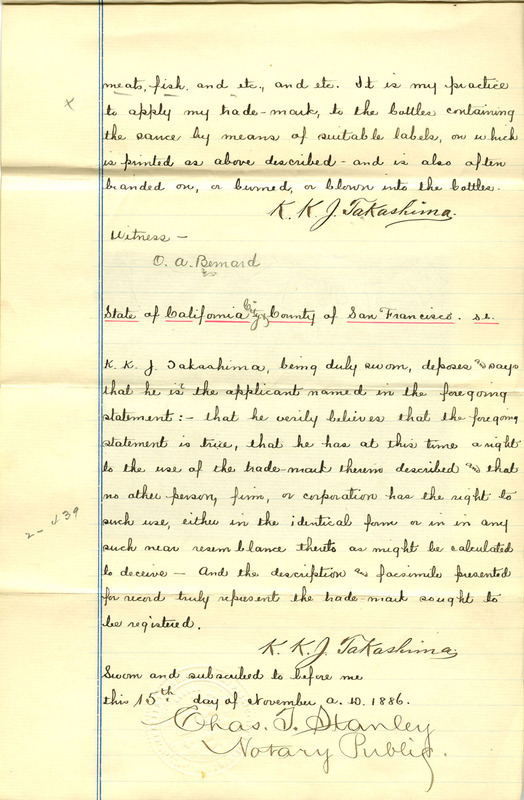 meats, fish, and etc., and etc. It is my practice
x
to apply my trade-mark, to the bottles containing
the sauce by means of suitable labels, on which
is printed as above described - and is also often
branded on, or burned, or blown into the bottles.
K. K. J. Takashima.
Witness -
O. A. Bernard
State of California City & County of San Francisco. s.s.
K. K. J. Takashima, being duly sworn, deposes and says
that he is the applicant named in the foregoing
statement:- that he verily believes that the foregoing
statement is true, that he has at this time a right
to the use of the trade-mark therein described and that
no other person, firm, or corporation has the right to
such use, either in the identical form or in in any
such near resemblance thereto as might be calculated
to deceive - And the description and facsimile presented
for record truly represent the trade-mark sought to
be registered.
K. K. J. Takashima.
Sworn and subscribed to before me
this 15th day of November A. D. 1886.
Chas. T. Stanley
Notary Public.